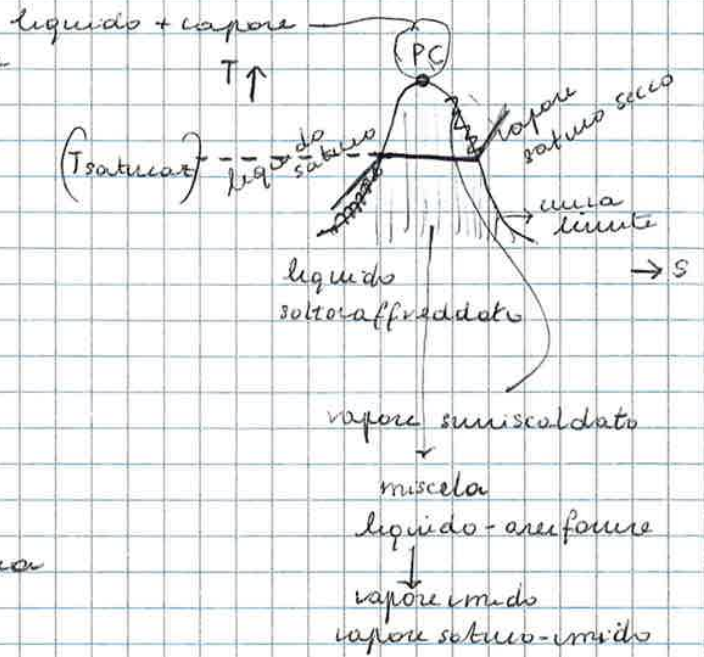 liquido + vapore
PC
T ↑
(Tsaturaz)
liquido
saturo
vapore
saturo secco
curva
limite
→ s
liquido
sottoraffreddato
vapore surriscaldato
miscela
liquido - aeriforme
vapore umido
vapore saturo-umido